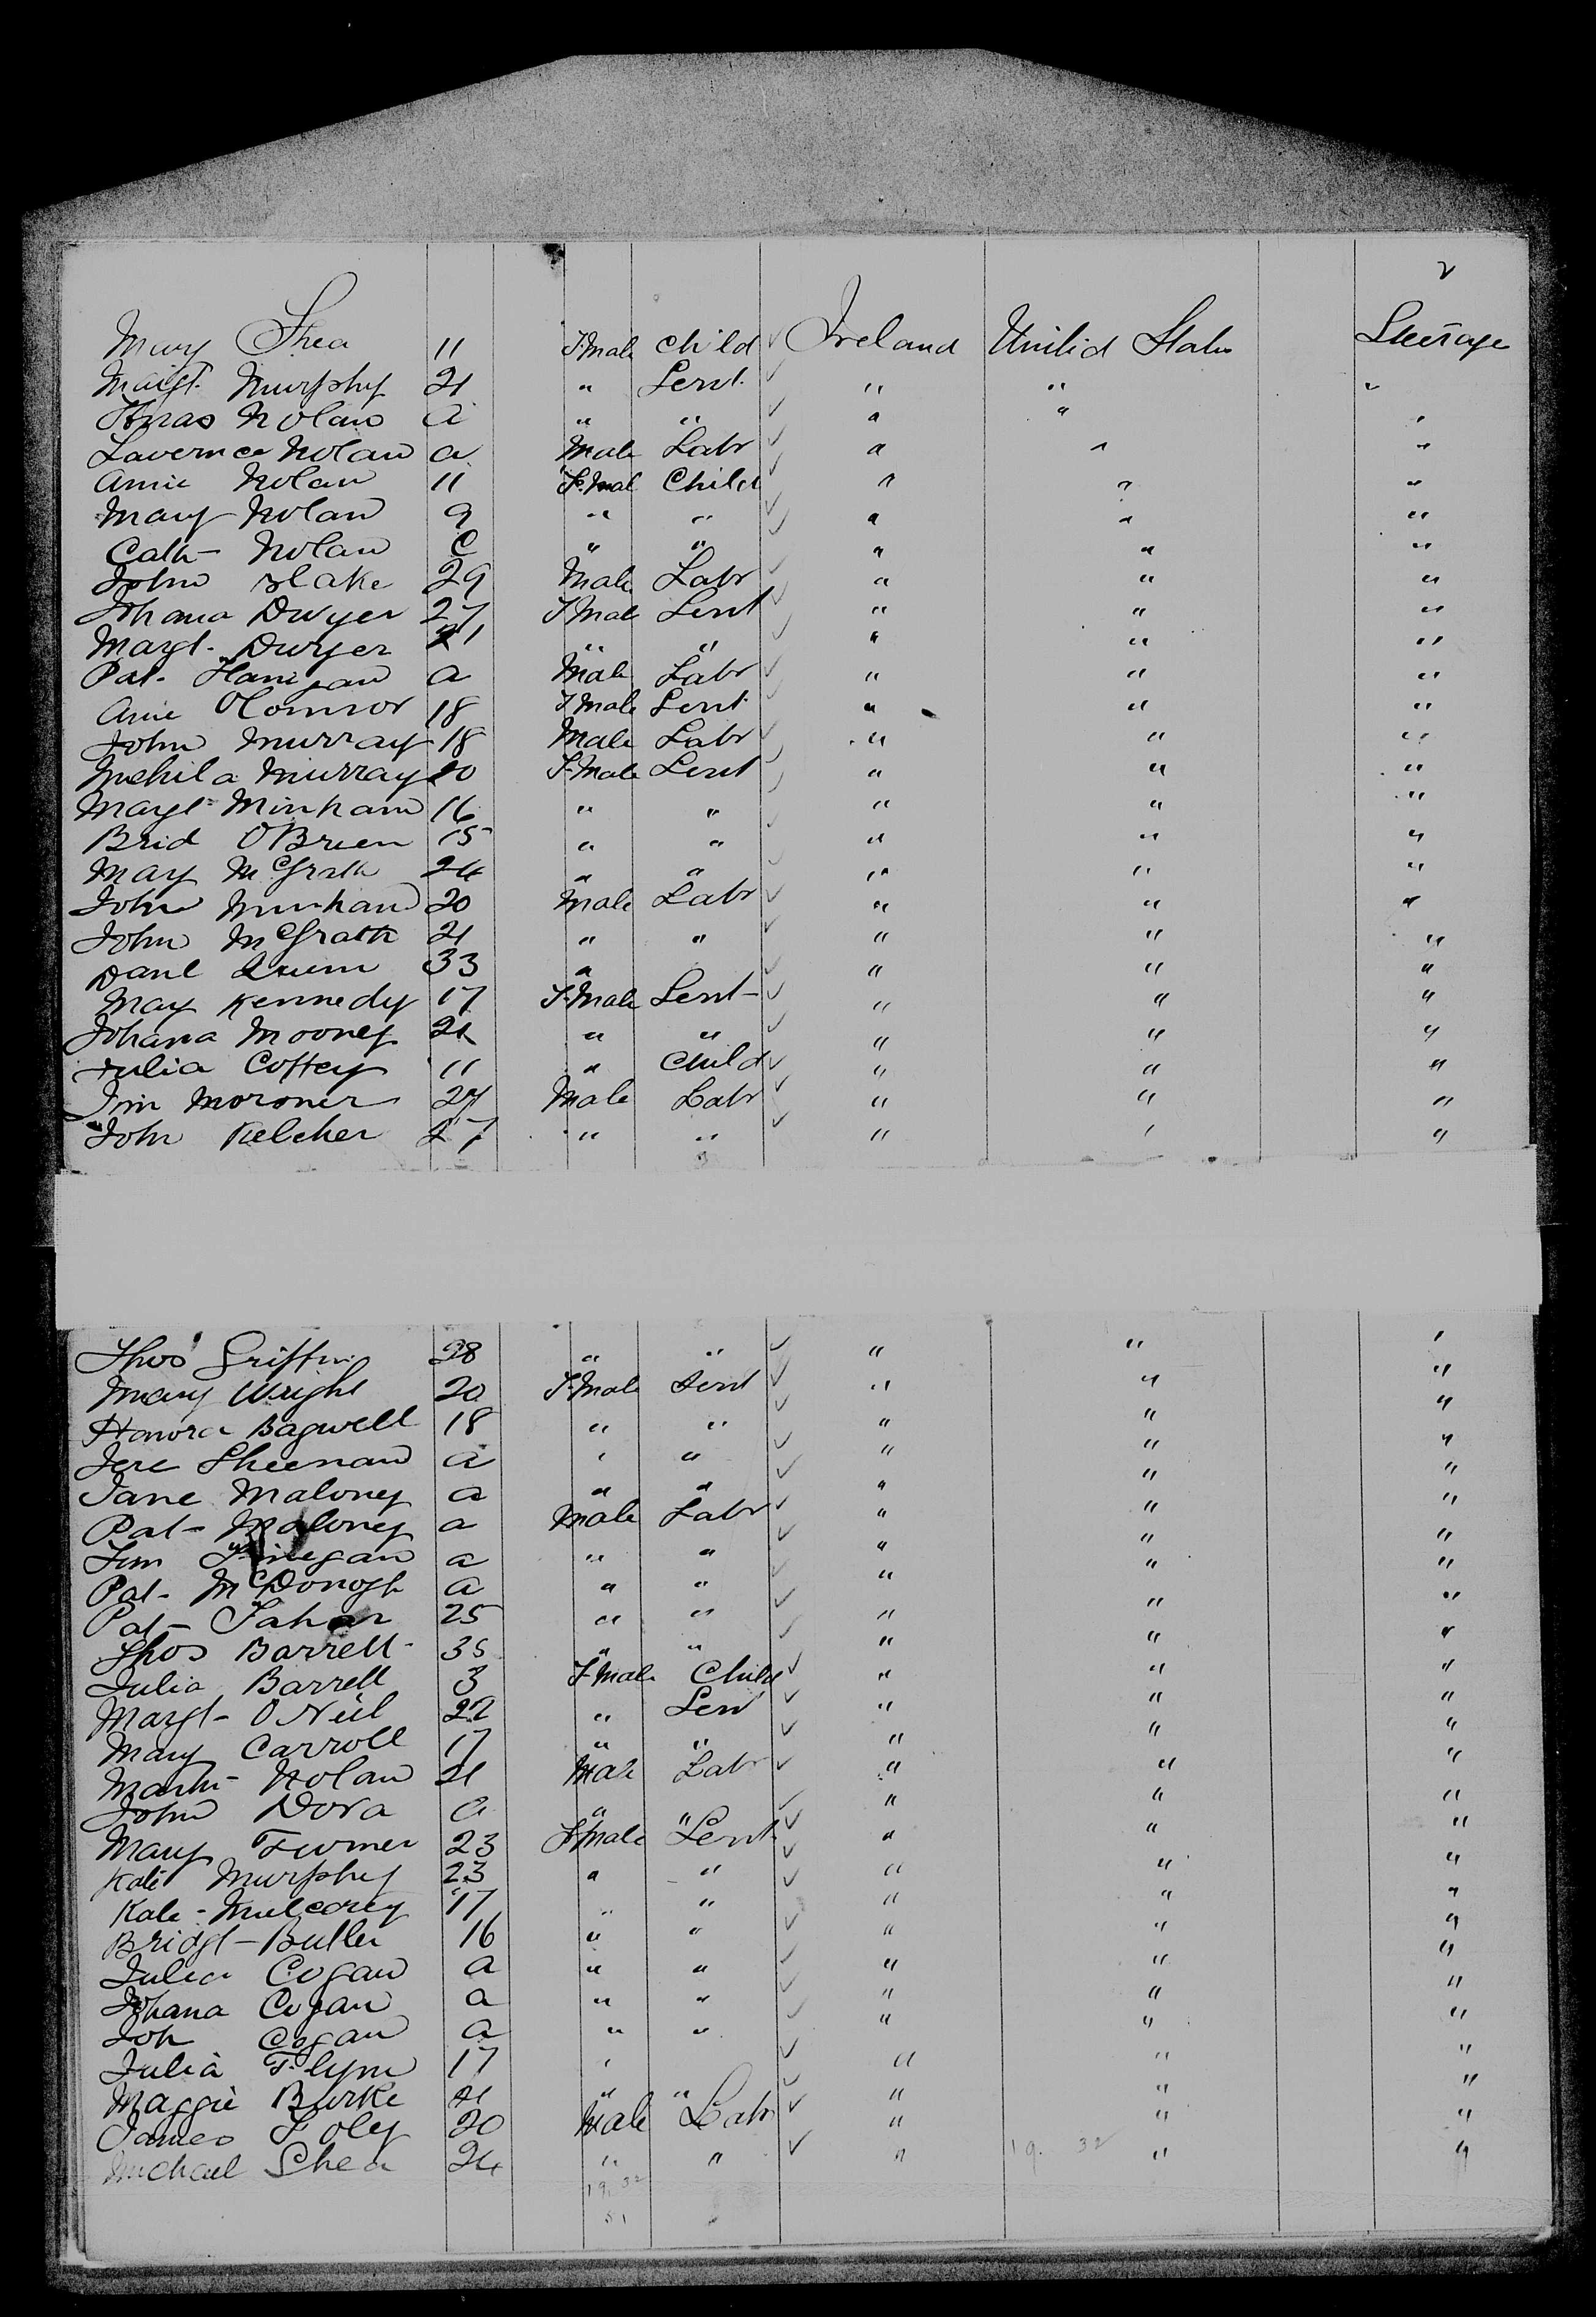 2
Mary Shea 11 F.Male Child ✓ Ireland United States Steerage
Margt. Murphy 21 " Servt. ✓ " " "
Thas Nolan a " " ✓ " " "
Lavernce Nolan a Male Labr ✓ " " "
Anie Nolan 11 F.Mal Child ✓ " " "
Mary Nolan 9 " " ✓ " " "
Cath- Nolan C " " ✓ " " "
John Blake 29 Male Labr ✓ " " "
Johana Dwyer 27 F Male Servt ✓ " " "
Margt. Dwyer 21 " " ✓ " " "
Pat- Flanigan a Male Labr ✓ " " "
Anie OConnor 18 F Male Servt ✓ " " "
John Murray 18 Male Labr ✓ " " "
Murray 20 F-Male Servt ✓ " " "
Margt- Minham 16 " " ✓ " " "
Brid OBrien 15 " " ✓ " " "
Mary McGrath 24 " " ✓ " " "
John Minham 20 Male Labr ✓ " " "
John McGrath 21 " " ✓ " " "
Danl Quinn 33 " ✓ " " "
May Kennedy 17 F-Male Servt- ✓ " " "
Johana Mooney 21 " " ✓ " " "
Julia Coffey 11 " Child ✓ " " "
Jim Moroner 27 Male Labr ✓ " " "
John Kelcher 27 " " ✓ " " "
Thos Griffin 28 " " ✓ " " "
Mary Wright 20 F-Male Servt ✓ " " "
Honora Bagwell 18 " " ✓ " " "
Jere Sheenan a " " ✓ " " "
Jane Maloney a " " ✓ " " "
Pat- Maloney a Male Labr ✓ " " "
Jim Finegan a " " ✓ " " "
Pat- McDonogh a " " ✓ " " "
Pat- Fahar 25 " " ✓ " " "
Thos Barrett 35 " " ✓ " " "
Julia Barrett 3 F-Male Child ✓ " " "
Margt- ONeil 22 " Serv ✓ " " "
Mary Carroll 17 " " ✓ " " "
Martin- Nolan 21 Male Labr ✓ " " "
John Dora a " " ✓ " " "
Mary Turner 23 F-Male Servt ✓ " " "
Kate Murphy 23 " " ✓ " " "
Kate- Mulcarey 17 " " ✓ " " "
Bridgt- Butler 16 " " ✓ " " "
Julia Cogan a " " ✓ " " "
Johana Cogan a " " ✓ " " "
Joh Cogan a " " ✓ " " "
Julia Flynn 17 " ✓ " " "
Maggie Burke 21 " " ✓ " " "
James Foley 20 Male Labr ✓ " " "
Michael Shea 24 " " ✓ " 19. 32 " "
19. 32
51